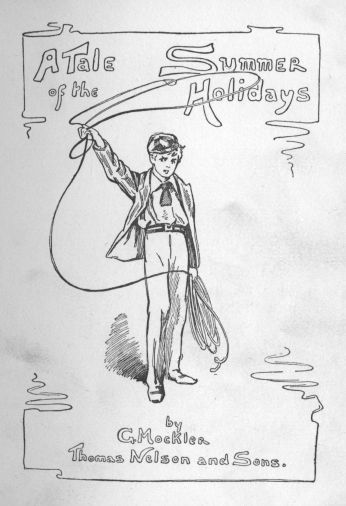 A Tale Summer
of the Holidays
by
G. Mockler
Thomas Nelson and Sons.